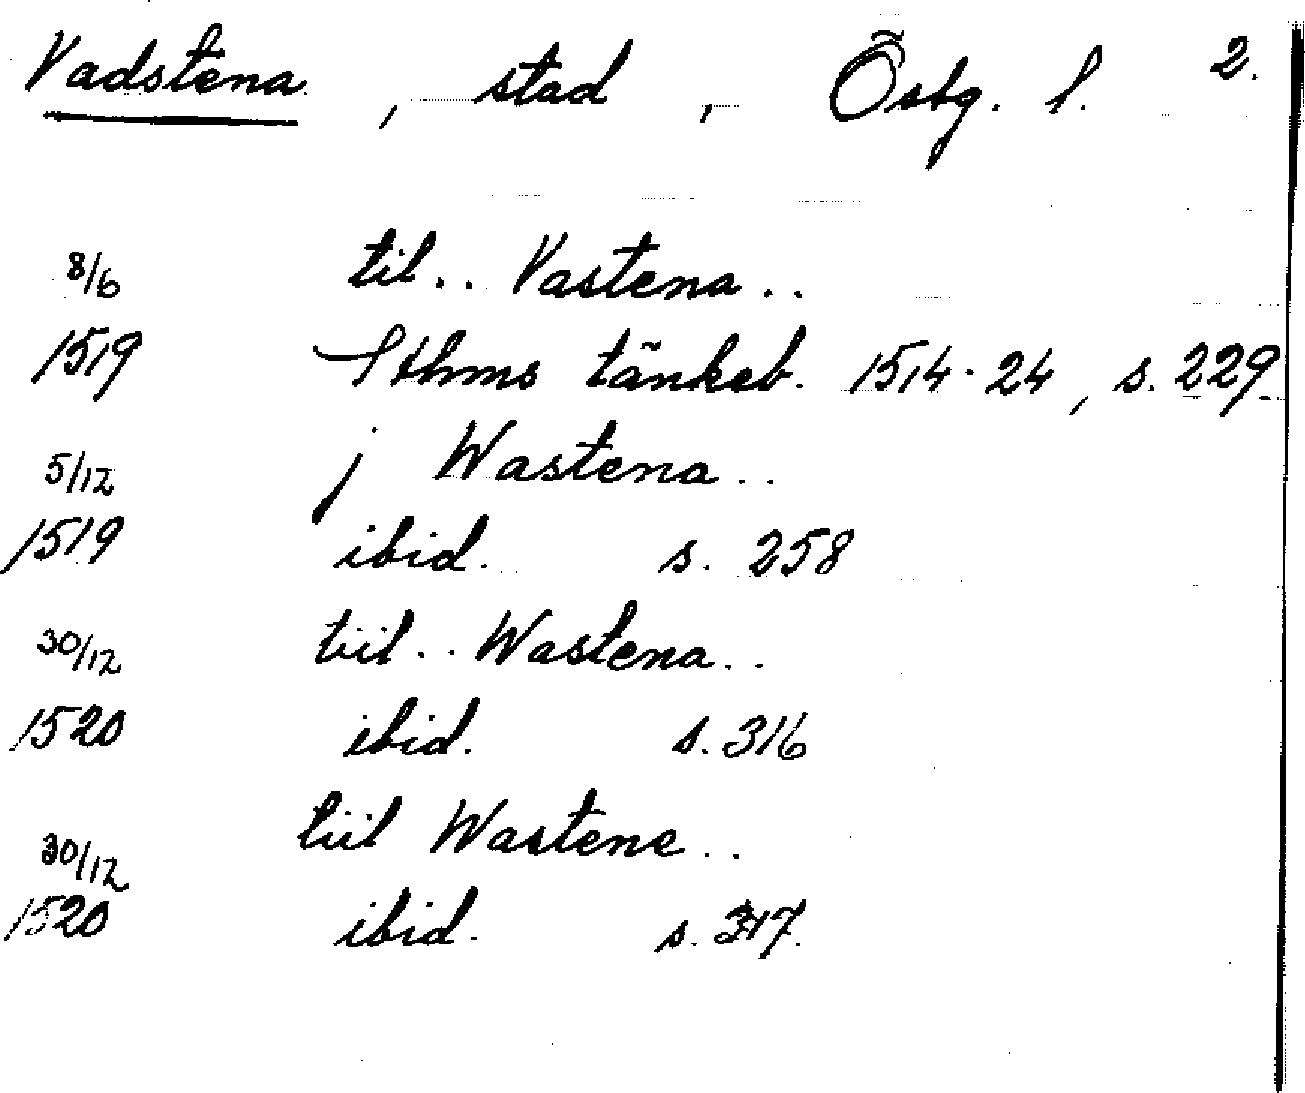 Vadstena, stad, Östg. l. 2.
8/6 til.. Vastena..
1519 Sthms tänkeb. 1514-24, s. 229
5/12 j Wastena..
1519 ibid. s. 258
30/12 tiil.. Wastena..
1520 ibid. s. 316
30/12 tiil Wastene..
1520 ibid. s. 317.